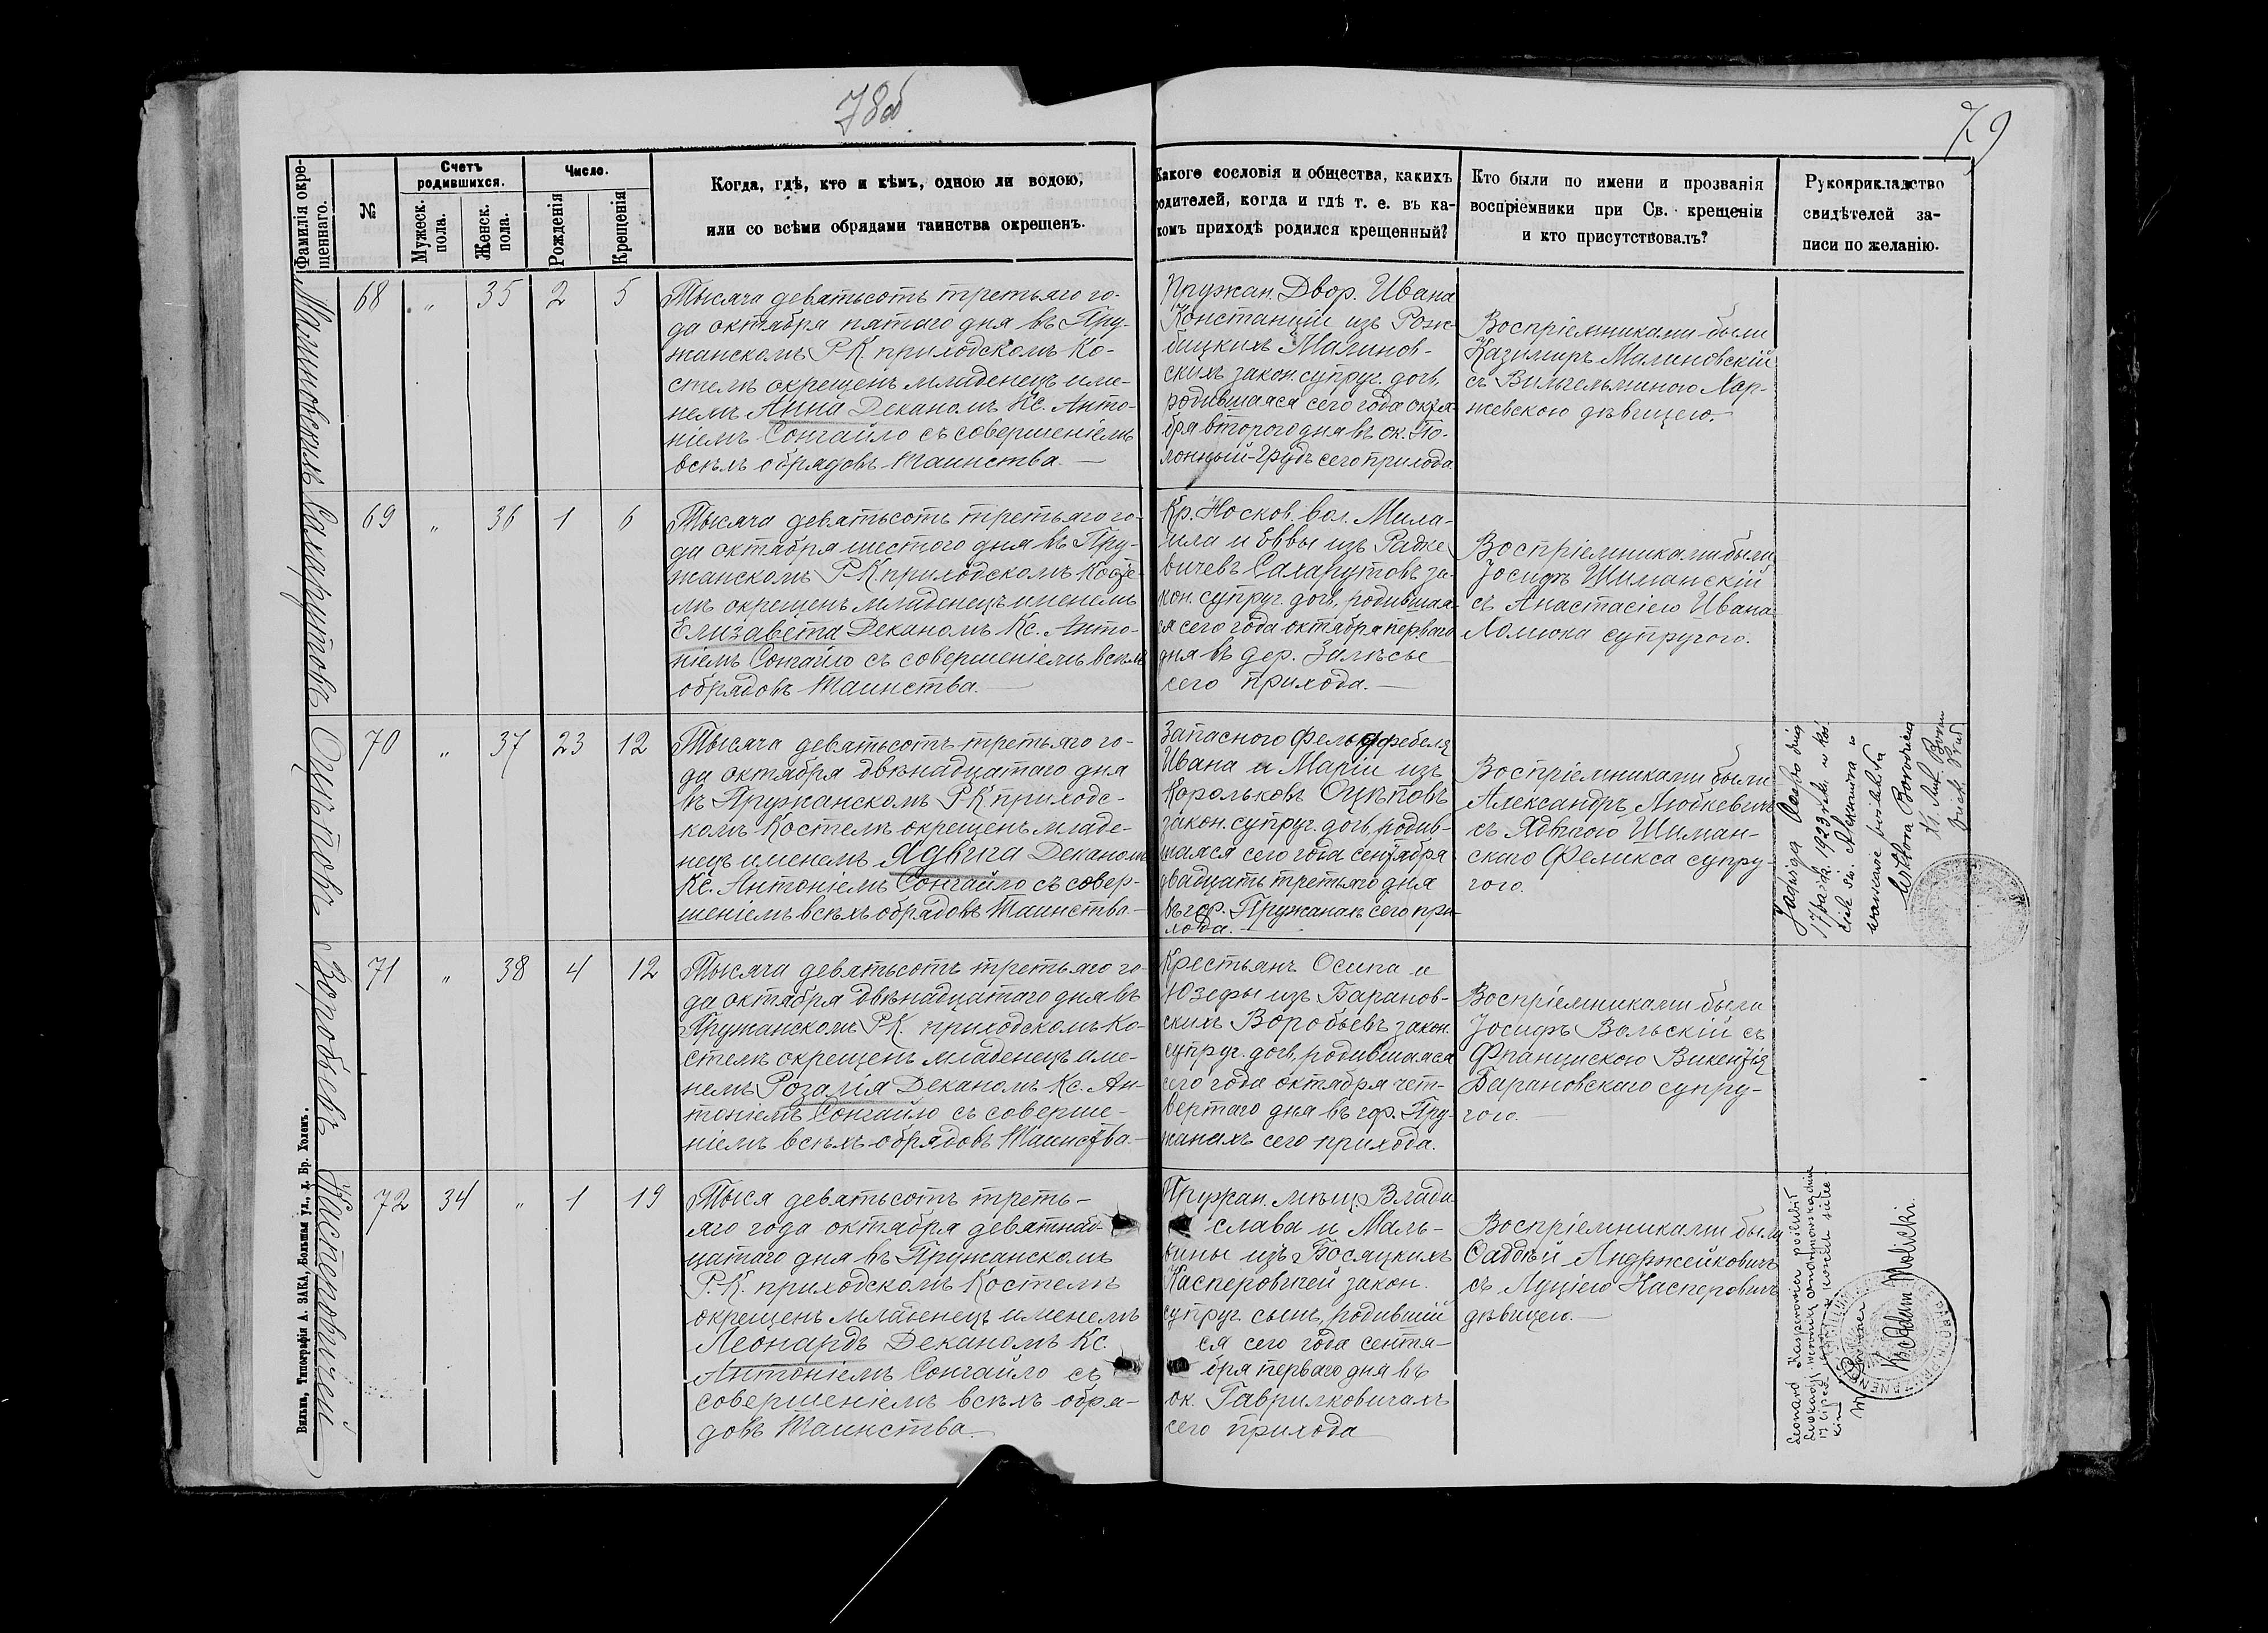 78об
79
Фамилія окре-
щеннаго.
№
Счетъ
родившихся.
Мужеск.
пола.
Женск.
пола.
Число.
Рожденія
Крещенія
Когда, гдѣ, кто и кѣмъ, одною ли водою,
или со всѣми обрядами таинства окрещенъ.
Какого сословія и общества, какихъ
родителей, когда и гдѣ т. е. въ ка-
комъ приходѣ родился крещенный?
Кто были по имени и прозванія
воспріемники при Св. крещеніи
и кто присутствовалъ?
Рукоприкладство
свидѣтелей за-
писи по желанію.
Малиновскихъ
68 " 35 2 5
Тысяча девятьсотъ третьяго го-
да октября пятаго дня въ Пру-
жанскомъ Р-К приходскомъ Ко-
стелѣ окрещенъ младенецъ име-
немъ Анна Деканомъ Кс. Анто-
ніемъ Сонгайло съ совершеніемъ
всѣхъ обрядовъ Таинства.
Пружан. Двор. Ивана
Констанціи изъ Рож-
бицкихъ Малинов-
скихъ закон. супруг. дочь,
родившаяся сего года октя-
бря второго дня въ ок.
сего прихода
Воспріемниками были
Казимиръ Малиновскій
съ Вильгельминою Хар-
жевскою дѣвицею.
Сахарутовъ
69 " 36 1 6
Тысяча девятьсотъ третьяго го-
да октября шестого дня въ Пру-
жанскомъ Р-К приходскомъ Косте-
лѣ окрещенъ младенецъ именемъ
Елизавета Деканомъ Кс. Анто-
ніемъ Сонгайло съ совершеніемъ всѣхъ
обрядовъ Таинства.
Кр. Носков. вол. Миха-
ила и Еввы изъ Радке-
вичевъ Сахарутовъ за-
кон. супруг. дочь, родившая-
ся сего года октября перваго
дня въ дер. Залѣсье
сего прихода.
Воспріемниками были
Іосифъ Шиманскій
съ Анастасіею Ивана
Хомюка супругою.
Оцѣповъ
70 " 37 23 12
Тысяча девятьсотъ третьяго го-
да октября двѣнадцатаго дня
въ Пружанскомъ Р-К приходс-
комъ Костелѣ окрещенъ младе-
нецъ именемъ Ядвига Деканомъ
Кс. Антоніемъ Сонгайло съ совер-
шеніемъ всѣхъ обрядовъ Таинства
Запаснаго фельдфебеля
Ивана и Маріи изъ
Корольковъ Оцѣповъ
закон. супруг. дочь, родив-
шаяся сего года сентября
двадцать третьяго дня
въ гор. Пружанахъ сего при-
хода.
Воспріемниками были
Александръ Любкевичъ
съ Ядвигою Шиман-
скаго Феликса супру-
гою.
Jadwiga dnia
17 1923 roku w koś
ciele św. Aleksandra w
Wiktora Borodzicza
Воробьевъ
71 " 38 4 12
Тысяча девятьсотъ третьяго го-
да октября двѣнадцатаго дня въ
Пружанскомъ Р.К. приходскомъ Ко-
стелѣ окрещенъ младенецъ име-
немъ Розалія Деканомъ Кс. Ан-
тоніемъ Сонгайло съ соверше-
ніемъ всѣхъ обрядовъ Таинства.
Крестьянъ Осипа и
Юзефы изъ Баранов-
скихъ Воробьевъ закон.
супруг. дочь, родившаяся
сего года октября чет-
вертаго дня въ гор. Пру-
жанахъ сего прихода.
Воспріемниками были
Іосифъ Вольскій съ
Францискою Викентія
Барановскаго супру-
гою.
Касперовичей
72 34 " 1 19
Тыся девятьсотъ треть-
яго года октября девятнад-
цатаго дня въ Пружанскомъ
Р.К. приходскомъ Костелѣ
окрещенъ младенецъ именемъ
Леонардъ Деканомъ Кс.
Антоніемъ Сонгайло съ
совершеніемъ всѣхъ обря-
довъ Таинства.
Пружан. мѣщ. Влади
слава и Маль-
вины изъ Босяцкихъ
Касперовичей закон.
супруг. сынъ, родившій
ся сего года сентя-
бря перваго дня въ
ок. Гаврилковичахъ
сего прихода
Воспріемниками были
Фаддѣй Анджейковичъ
съ Луціею Касперовичъ
дѣвицею.
Leonard Kasperowicz poślubił
17 lipca
Ks. Adam
Вильна, Типографія А. ЗАКА, Большая ул., д. Бр. Холемъ.